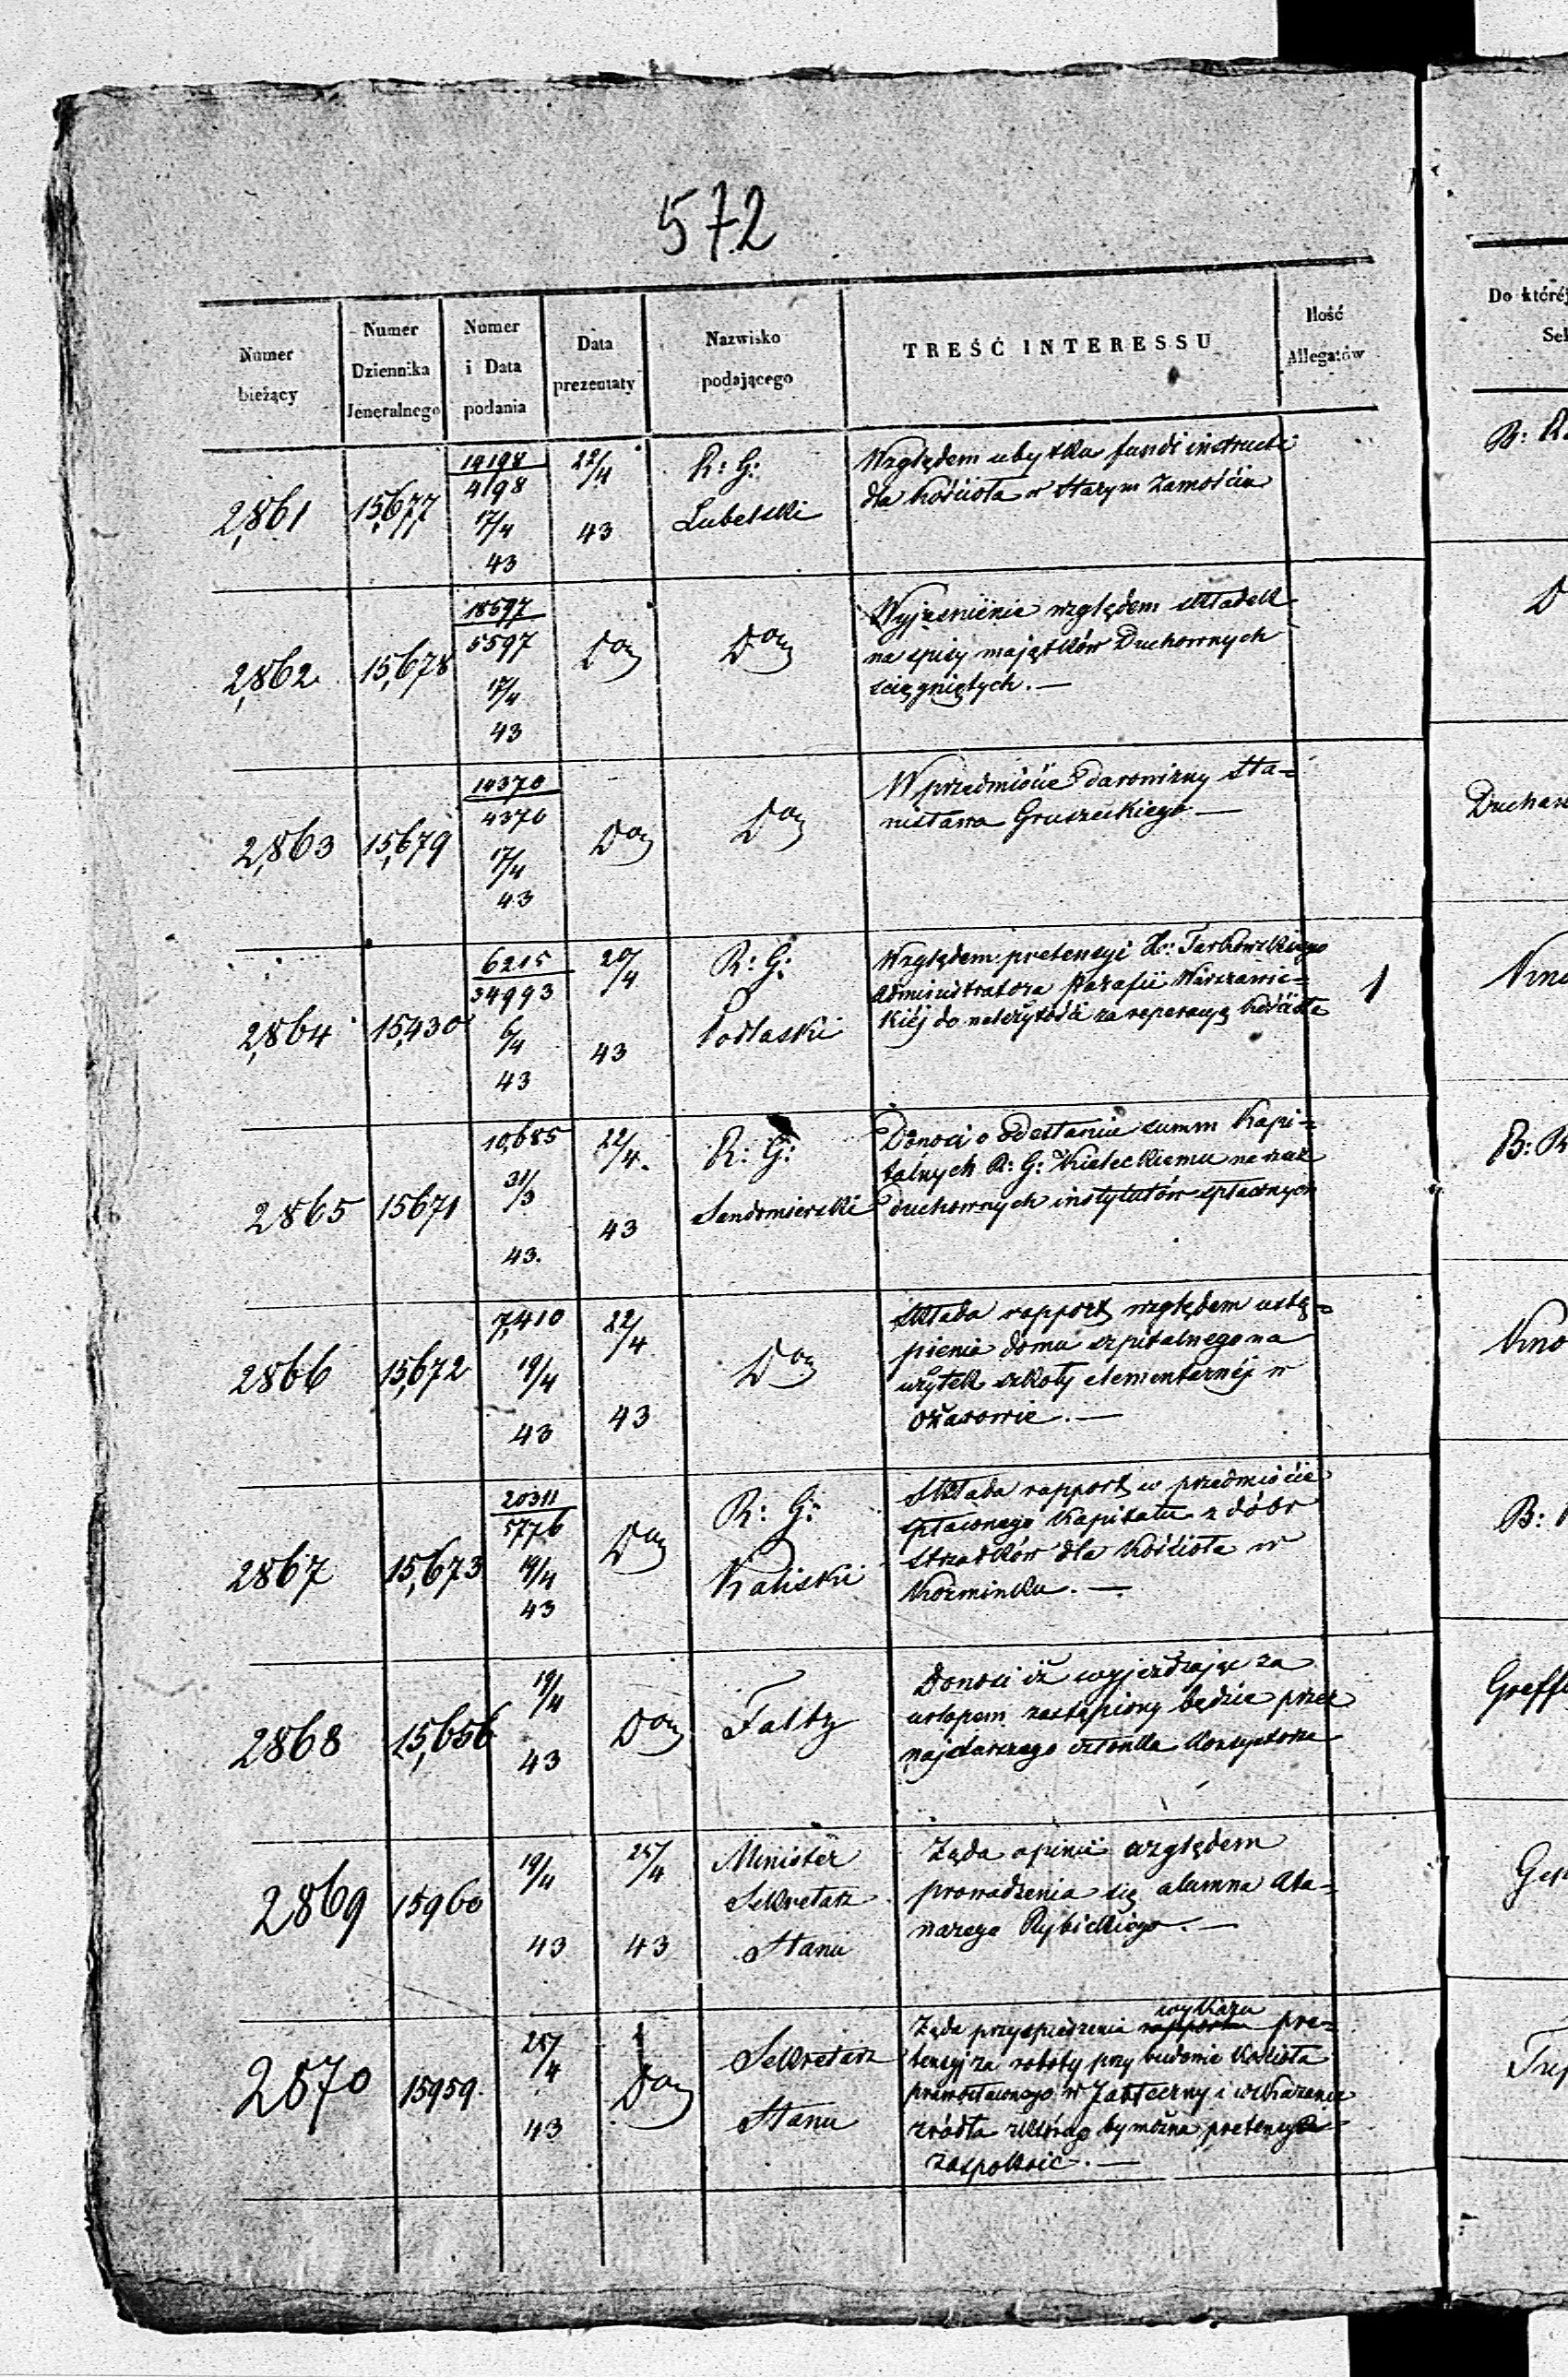 572
Numer bieżący | Numer Dziennika Jeneralnego | Numer i Data podania | Data prezentaty | Nazwisko podającego | TREŚĆ INTERESSU | Ilość Allegatów
Do któréj
Sek
2,861 | 15,677 | 14198 / 4198 17/4 43 | 22/4 43 | R: G: Lubelski
Względem ubytku fundi instructi
dla kościoła w Starym Zamościu
B: R
2,862 | 15,678 | 18597 / 5597 17/4 43 | Do | Do
Wyjaśnienie względem składek
na spisy majątków Duchownych
ściągniętych. —
D
2,863 | 15,679 | 14370 / 4370 17/4 43 | Do | Do
W przedmiocie darowizny Sta=
nisława Gruszeckiego —
2,864 | 15,430 | 6215 / 34993 6/4 43 | 20/4 43 | R: G: Podlaski
Względem pretensyi X: Tarkowskiego
Administratora parafii
kiéj do należytości za reperacyą kościoła
1
2865 | 15671 | 10,685 31/3 43. | 22/4. 43 | R: G: Sandomierski
Donosi o odesłaniu summ Kapi=
talnych R: G: Kieleckiemu na rzecz
duchownych instytutów spłaconych
B: R
2866 | 15,672 | 7,410 19/4 43 | 22/4 43 | Do
Składa rapport względem ustą=
pienia domu szpitalnego na
użytek szkoły élementarnéj w
Ożarowie. —
2867 | 15,673 | 20311 / 5776 19/4 43 | Do | R: G: Kaliski
Składa rapport w przedmiocie
spłaconego Kapitału z dóbr
Strzałków dla Kościoła w
Koźminku. —
B:
2868 | 15,656 | 19/4 43 | Do | Faltz
Donosi iż wyjeżdżając za
urlopem zastąpiony będzie przez
najstarszego członka Konsystorza
2869 | 15960 | 19/4 43 | 25/4 43 | Minister Sekretarz Stanu
Żąda opinii względem
prowadzenia się alumna Ata=
nazego Rybickiego. —
2870 | 15959. | 25/4 43 | Do | Sekretarz Stanu
Żąda przyspieszenia rapportu wykazu pre=
tensyj za roboty przy budowie Kościoła
prawosławnego w i wskazania
źródła z którego by można pretensye
zaspokoić. —